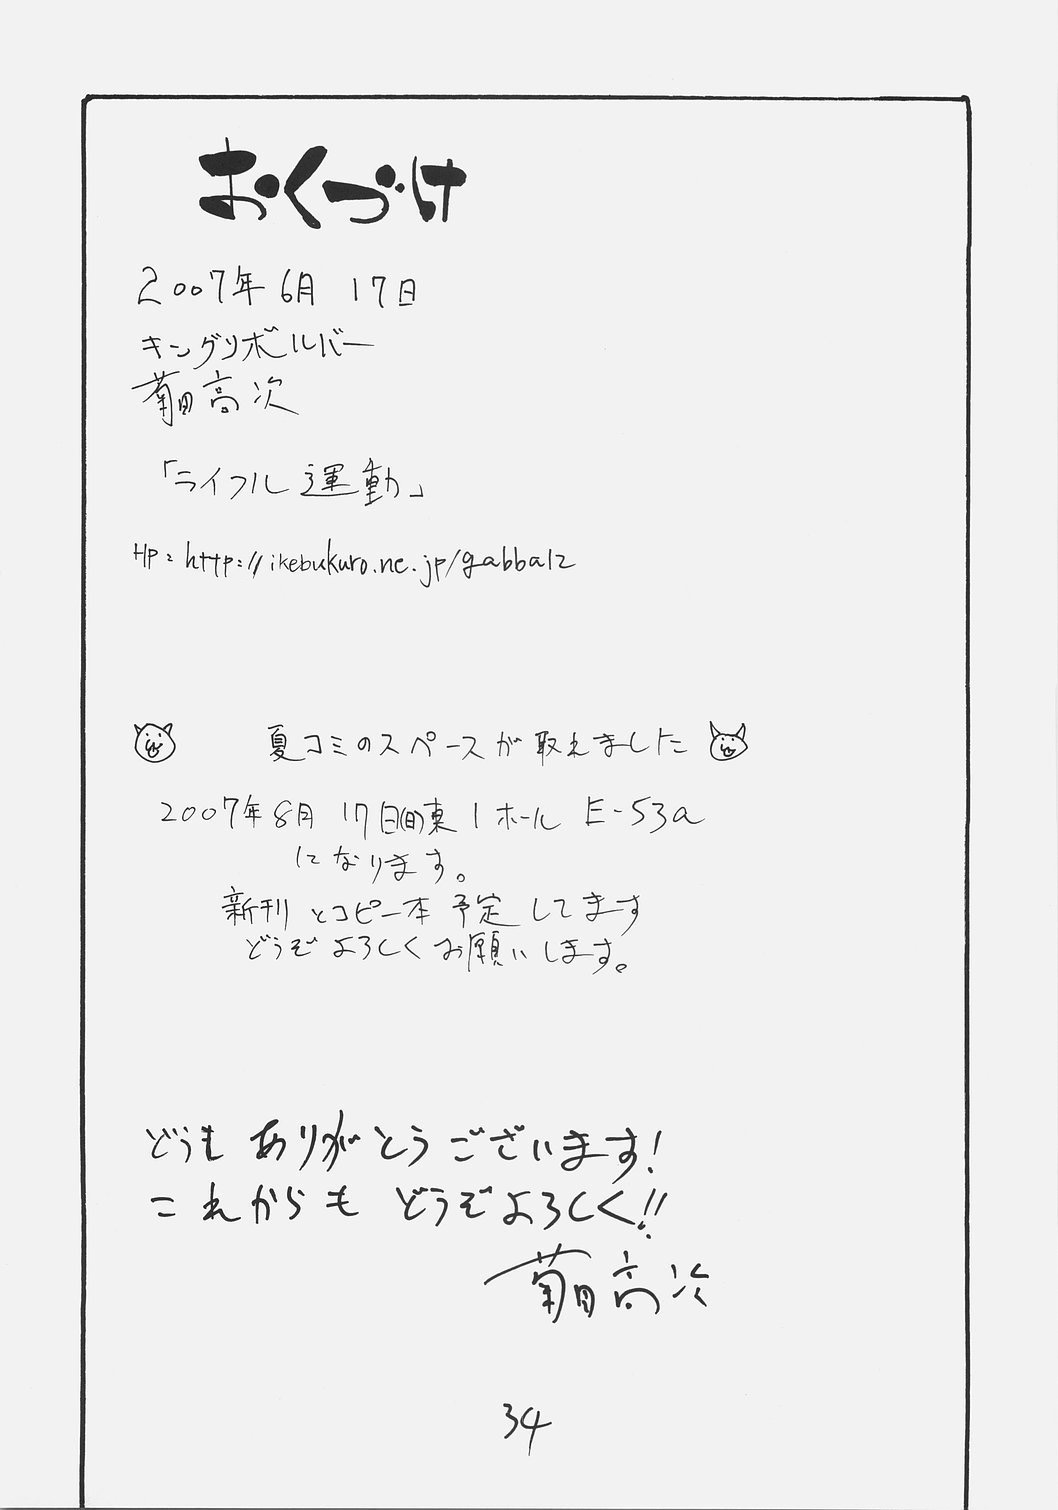 おくづけ
2007年6月17日
キングリボルバー
菊田高次
「ライフル運動」
HP: http://ikebukuro.ne.jp/gabba12
夏コミのスペースが取れました
2007年8月17日(日)東1ホール E-53a
になります。
新刊とコピー本予定してます
どうぞよろしくお願いします。
どうもありがとうございます!
これからもどうぞよろしく!!
菊田高次
34